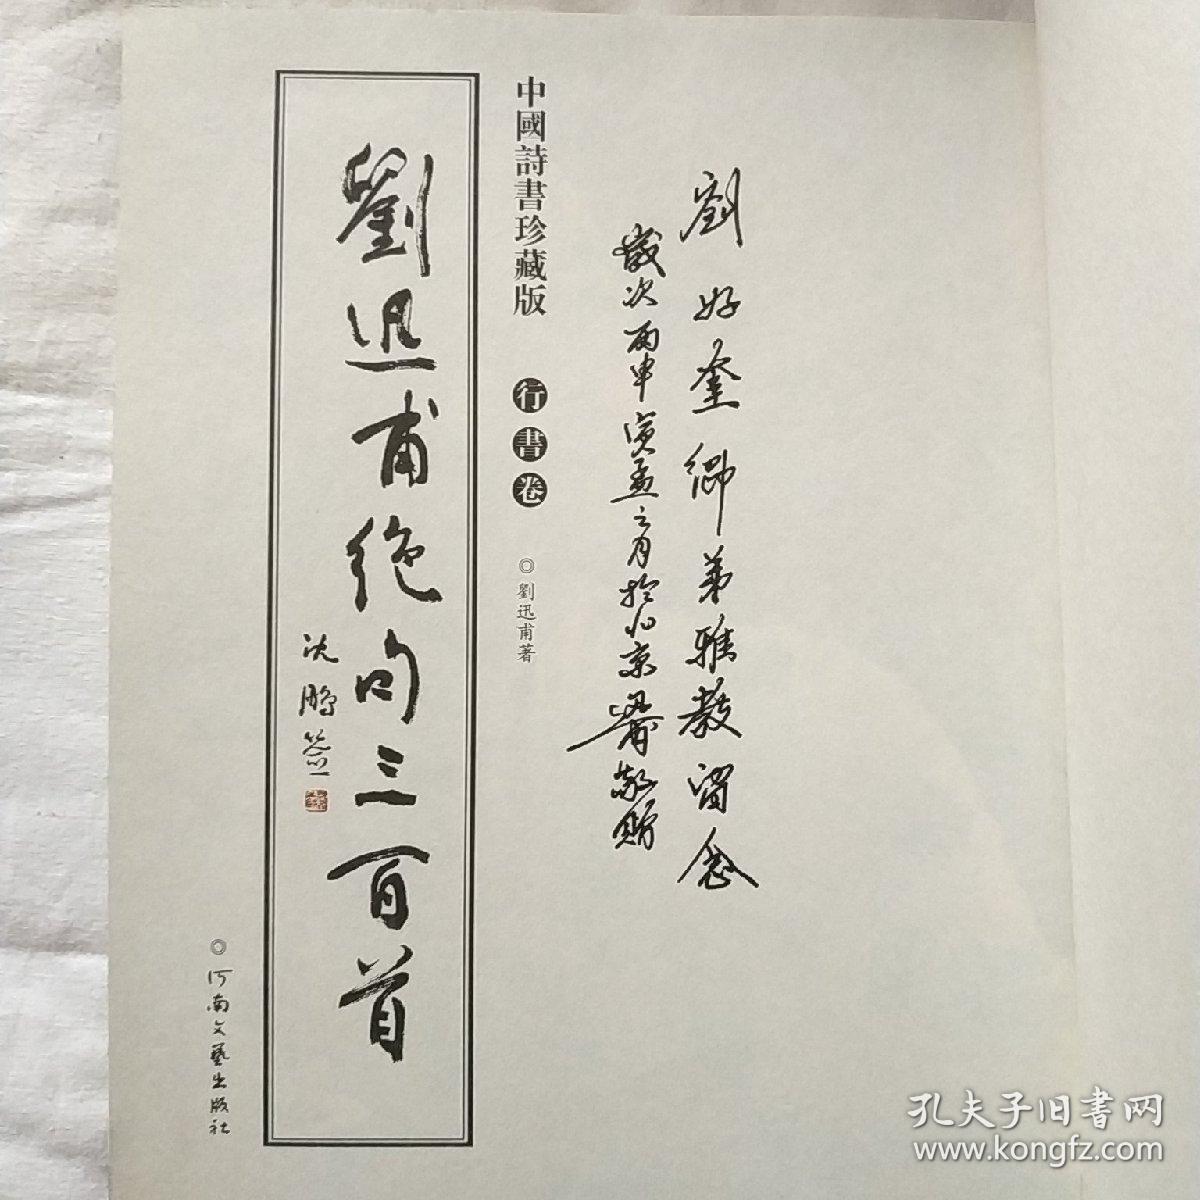 劉好奎鄉弟雅教留念
歲次丙申 之月於北京 敬贈
中國詩書珍藏版
行書卷
◎劉迅甫著
劉迅甫絕句三百首
沈鵬签
◎河南文藝出版社
孔夫子旧书网
www.kongfz.com